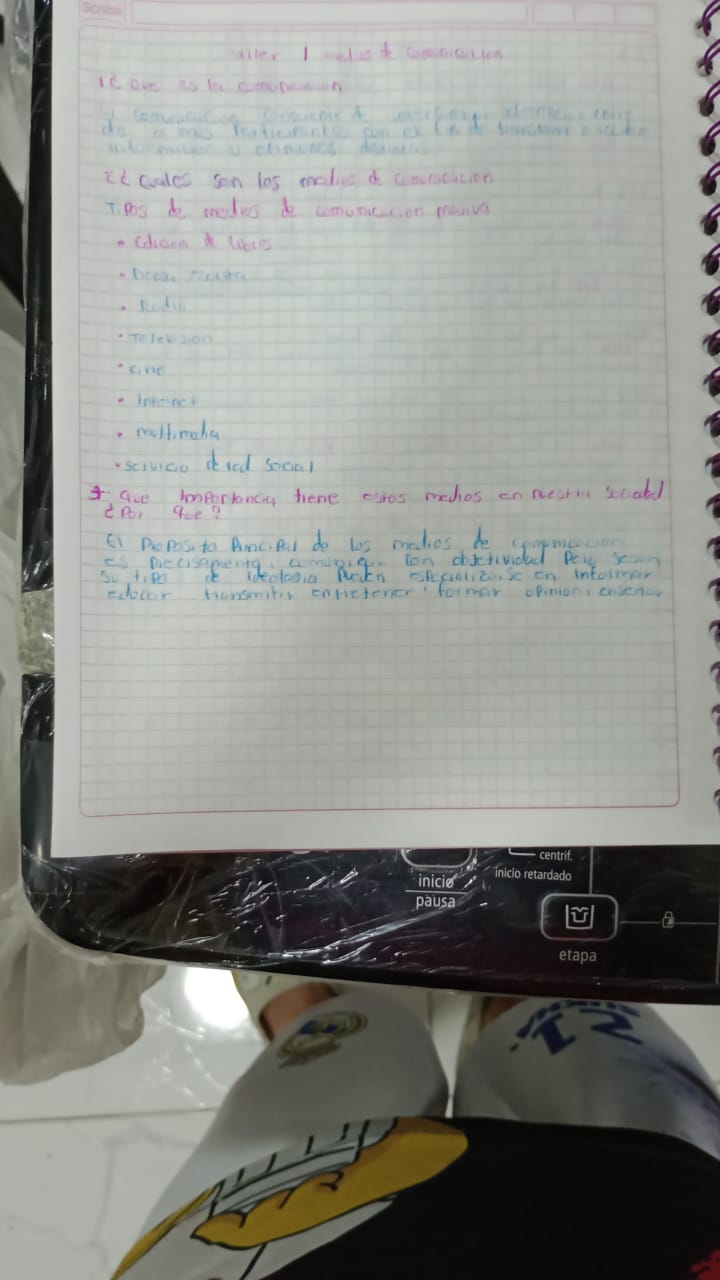 Scribe
Taller 1 medios de comunicacion
1 ¿ que es la comunicacion
comunicacion entre
participante con el fin de transmitir o recibir
informacion u opiniones
2 ¿ cuales son los medios de comunicacion
Tipos de medios de comunicacion masiva
• Edicion de libros
• Prensa escrita
• Radio
• Television
• cine
• Internet
• multimedia
• servicio de red social
3 que importancia tiene estos medios en nuestra sociedad
¿ Por que ?
El proposito principal de los medios de comunicacion
es precisamente, comunicar con objetividad pero segun
su tipo de ideologia pueden especializarse en informar
educar transmitir entretener, formar opinion, enseñar
centrif.
inicio retardado
inicio
pausa
etapa